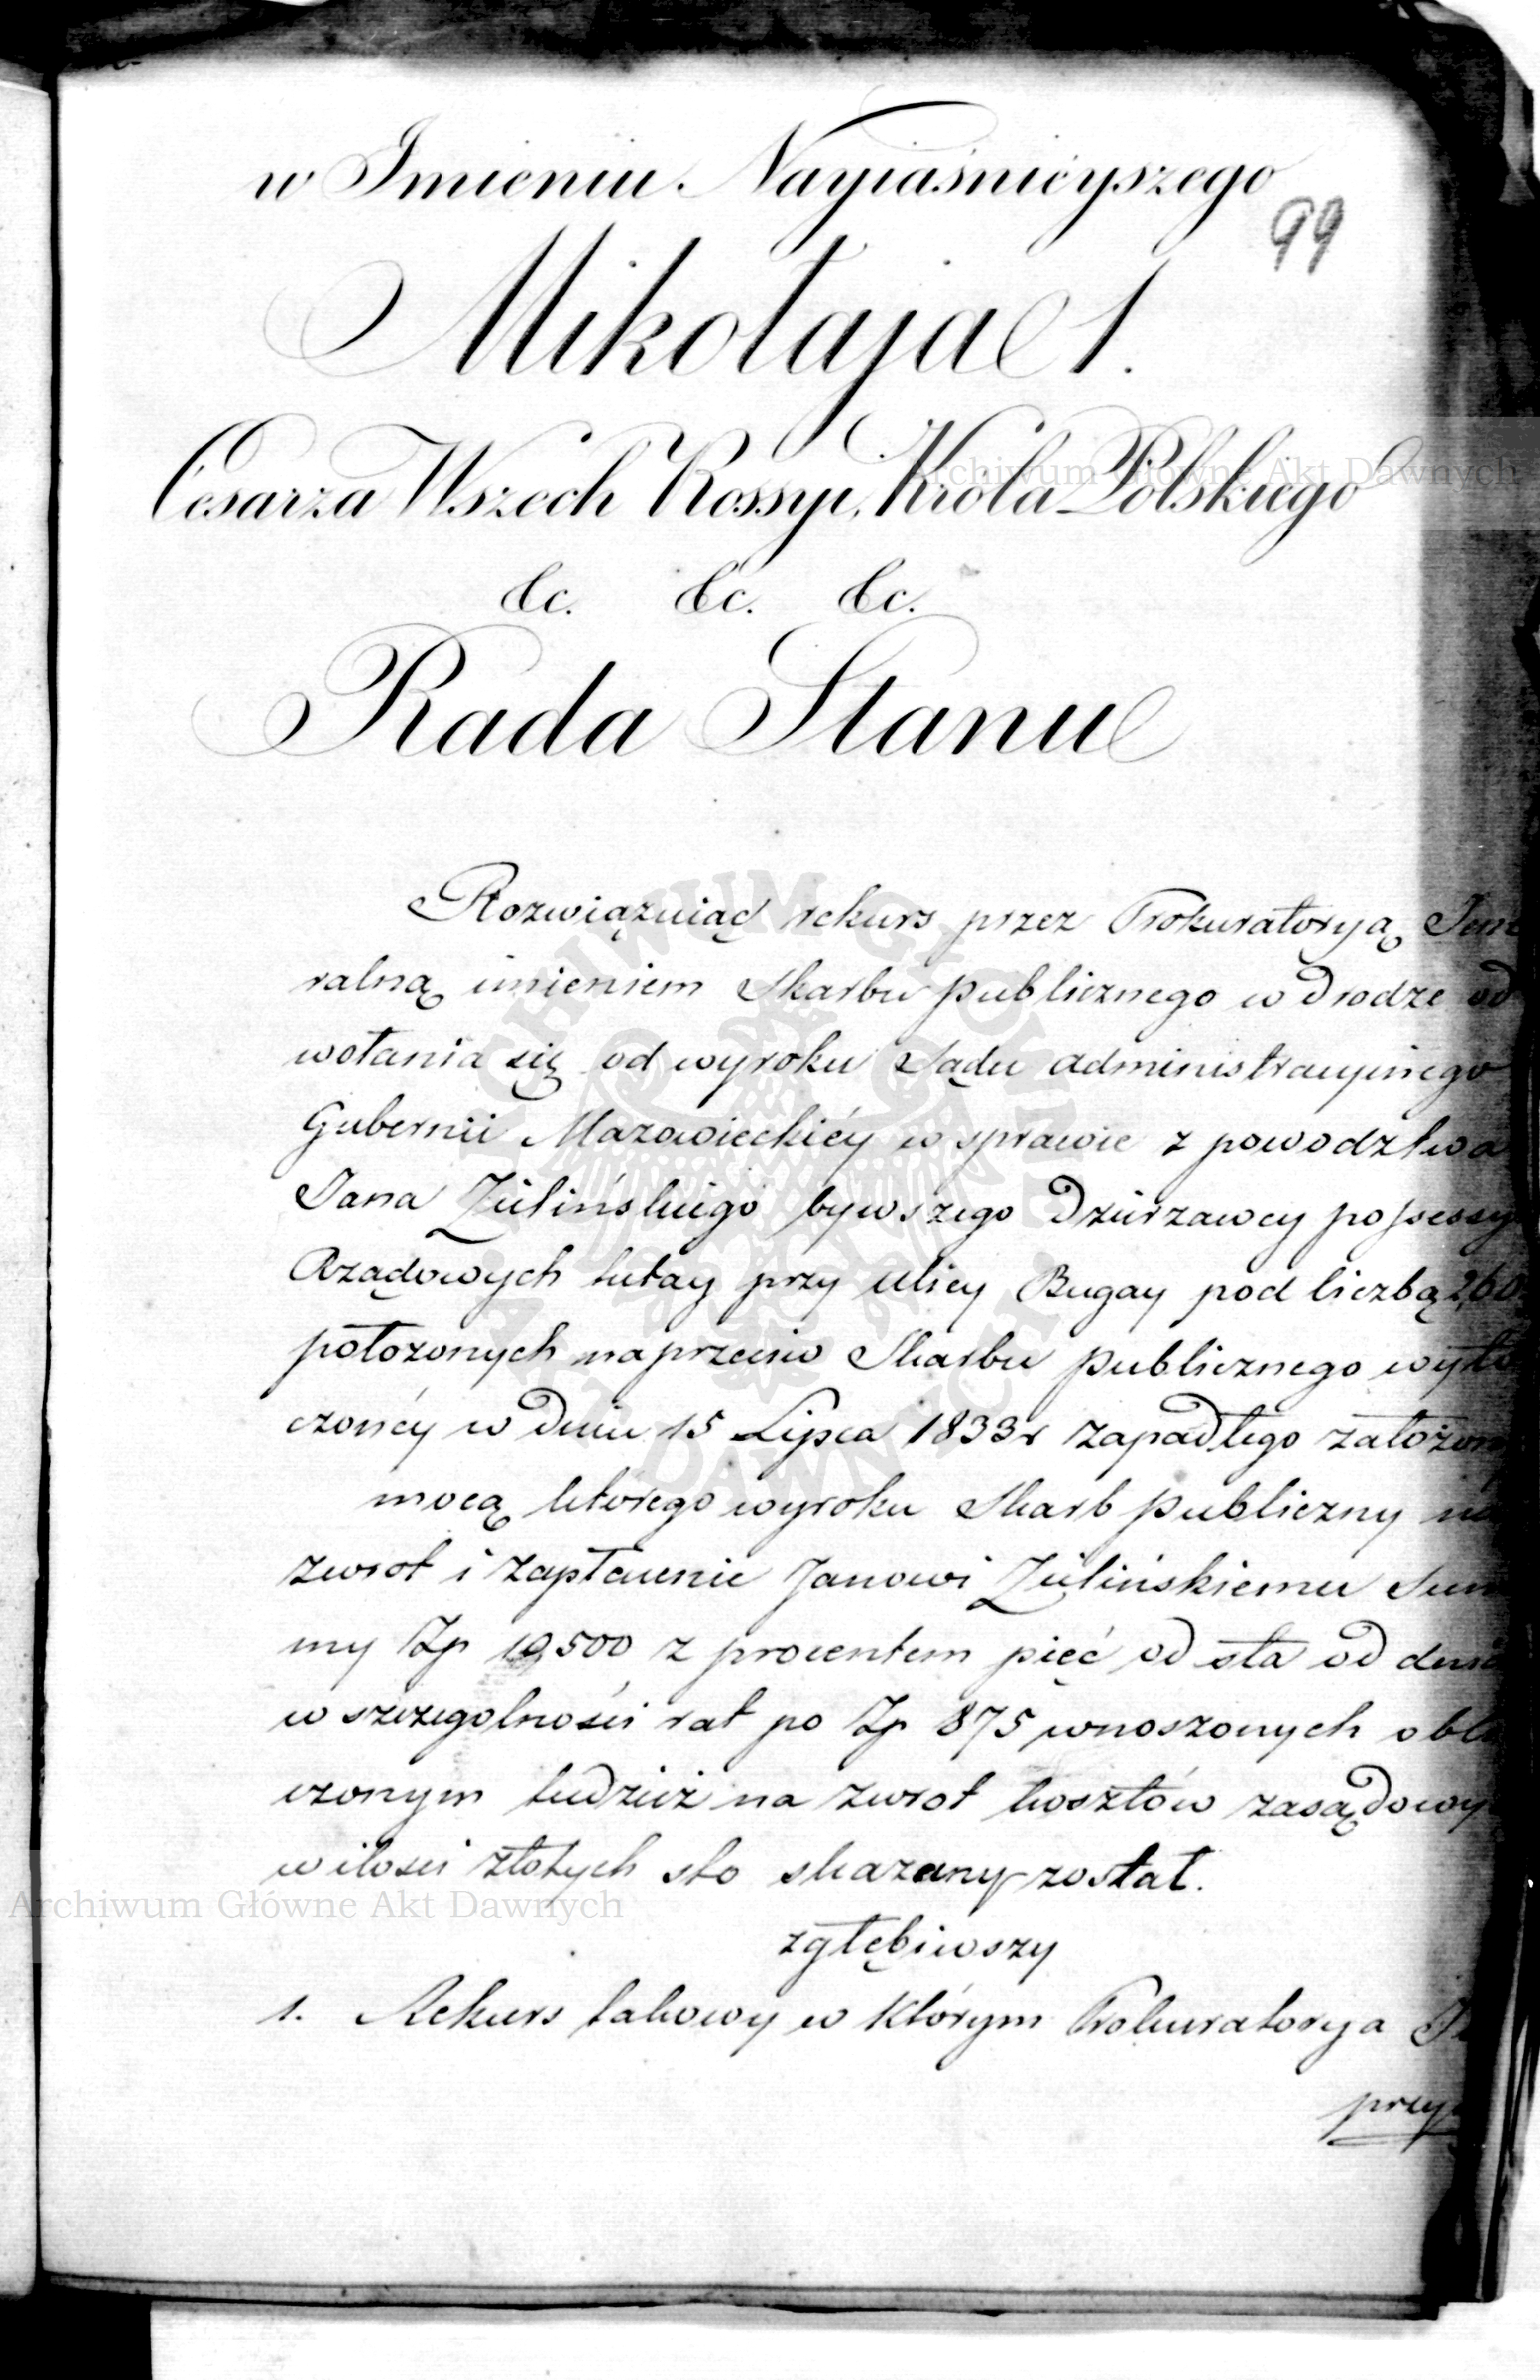 w Imieniu Nayiaśnieyszego
99
Mikołaja 1.
Cesarza Wszech Rossyi, Króla Polskiego
&c. &c. &c.
Rada Stanu
Rozwiązuiąc rekurs przez Prokuratoryą Jene
ralną imieniem Skarbu publicznego w drodze od
wołania się od wyroku Sądu administracyinego
Gubernii Mazowieckiéy w sprawie z powodztwa
Jana Zulińskiego bywszego Dzierzawcy possessyi
Rządowych tutay przy ulicy Bugay pod liczbą 260
położonych naprzeciw Skarbu publicznego wyto
czonéy w dniu 15 Lipca 1833 r zapadłego założony
mocą którego wyroku Skarb publiczny na
zwrot i zapłacenie Janowi Zulińskiemu Sum
my Zp 10,500 z procentem pięć od sta od dnia
w szczegolności rat po Zp 875 wnoszonych obli
czonym tudzież na zwrot kosztów zasądowych
w ilości złotych sto skazany został.
zgłębiwszy
1. Rekurs takowy w którym Prokuratorya
przy
Archiwum Główne Akt Dawnych
Archiwum Główne Akt Dawnych
ARCHIWUM GŁÓWNE AKT DAWNYCH